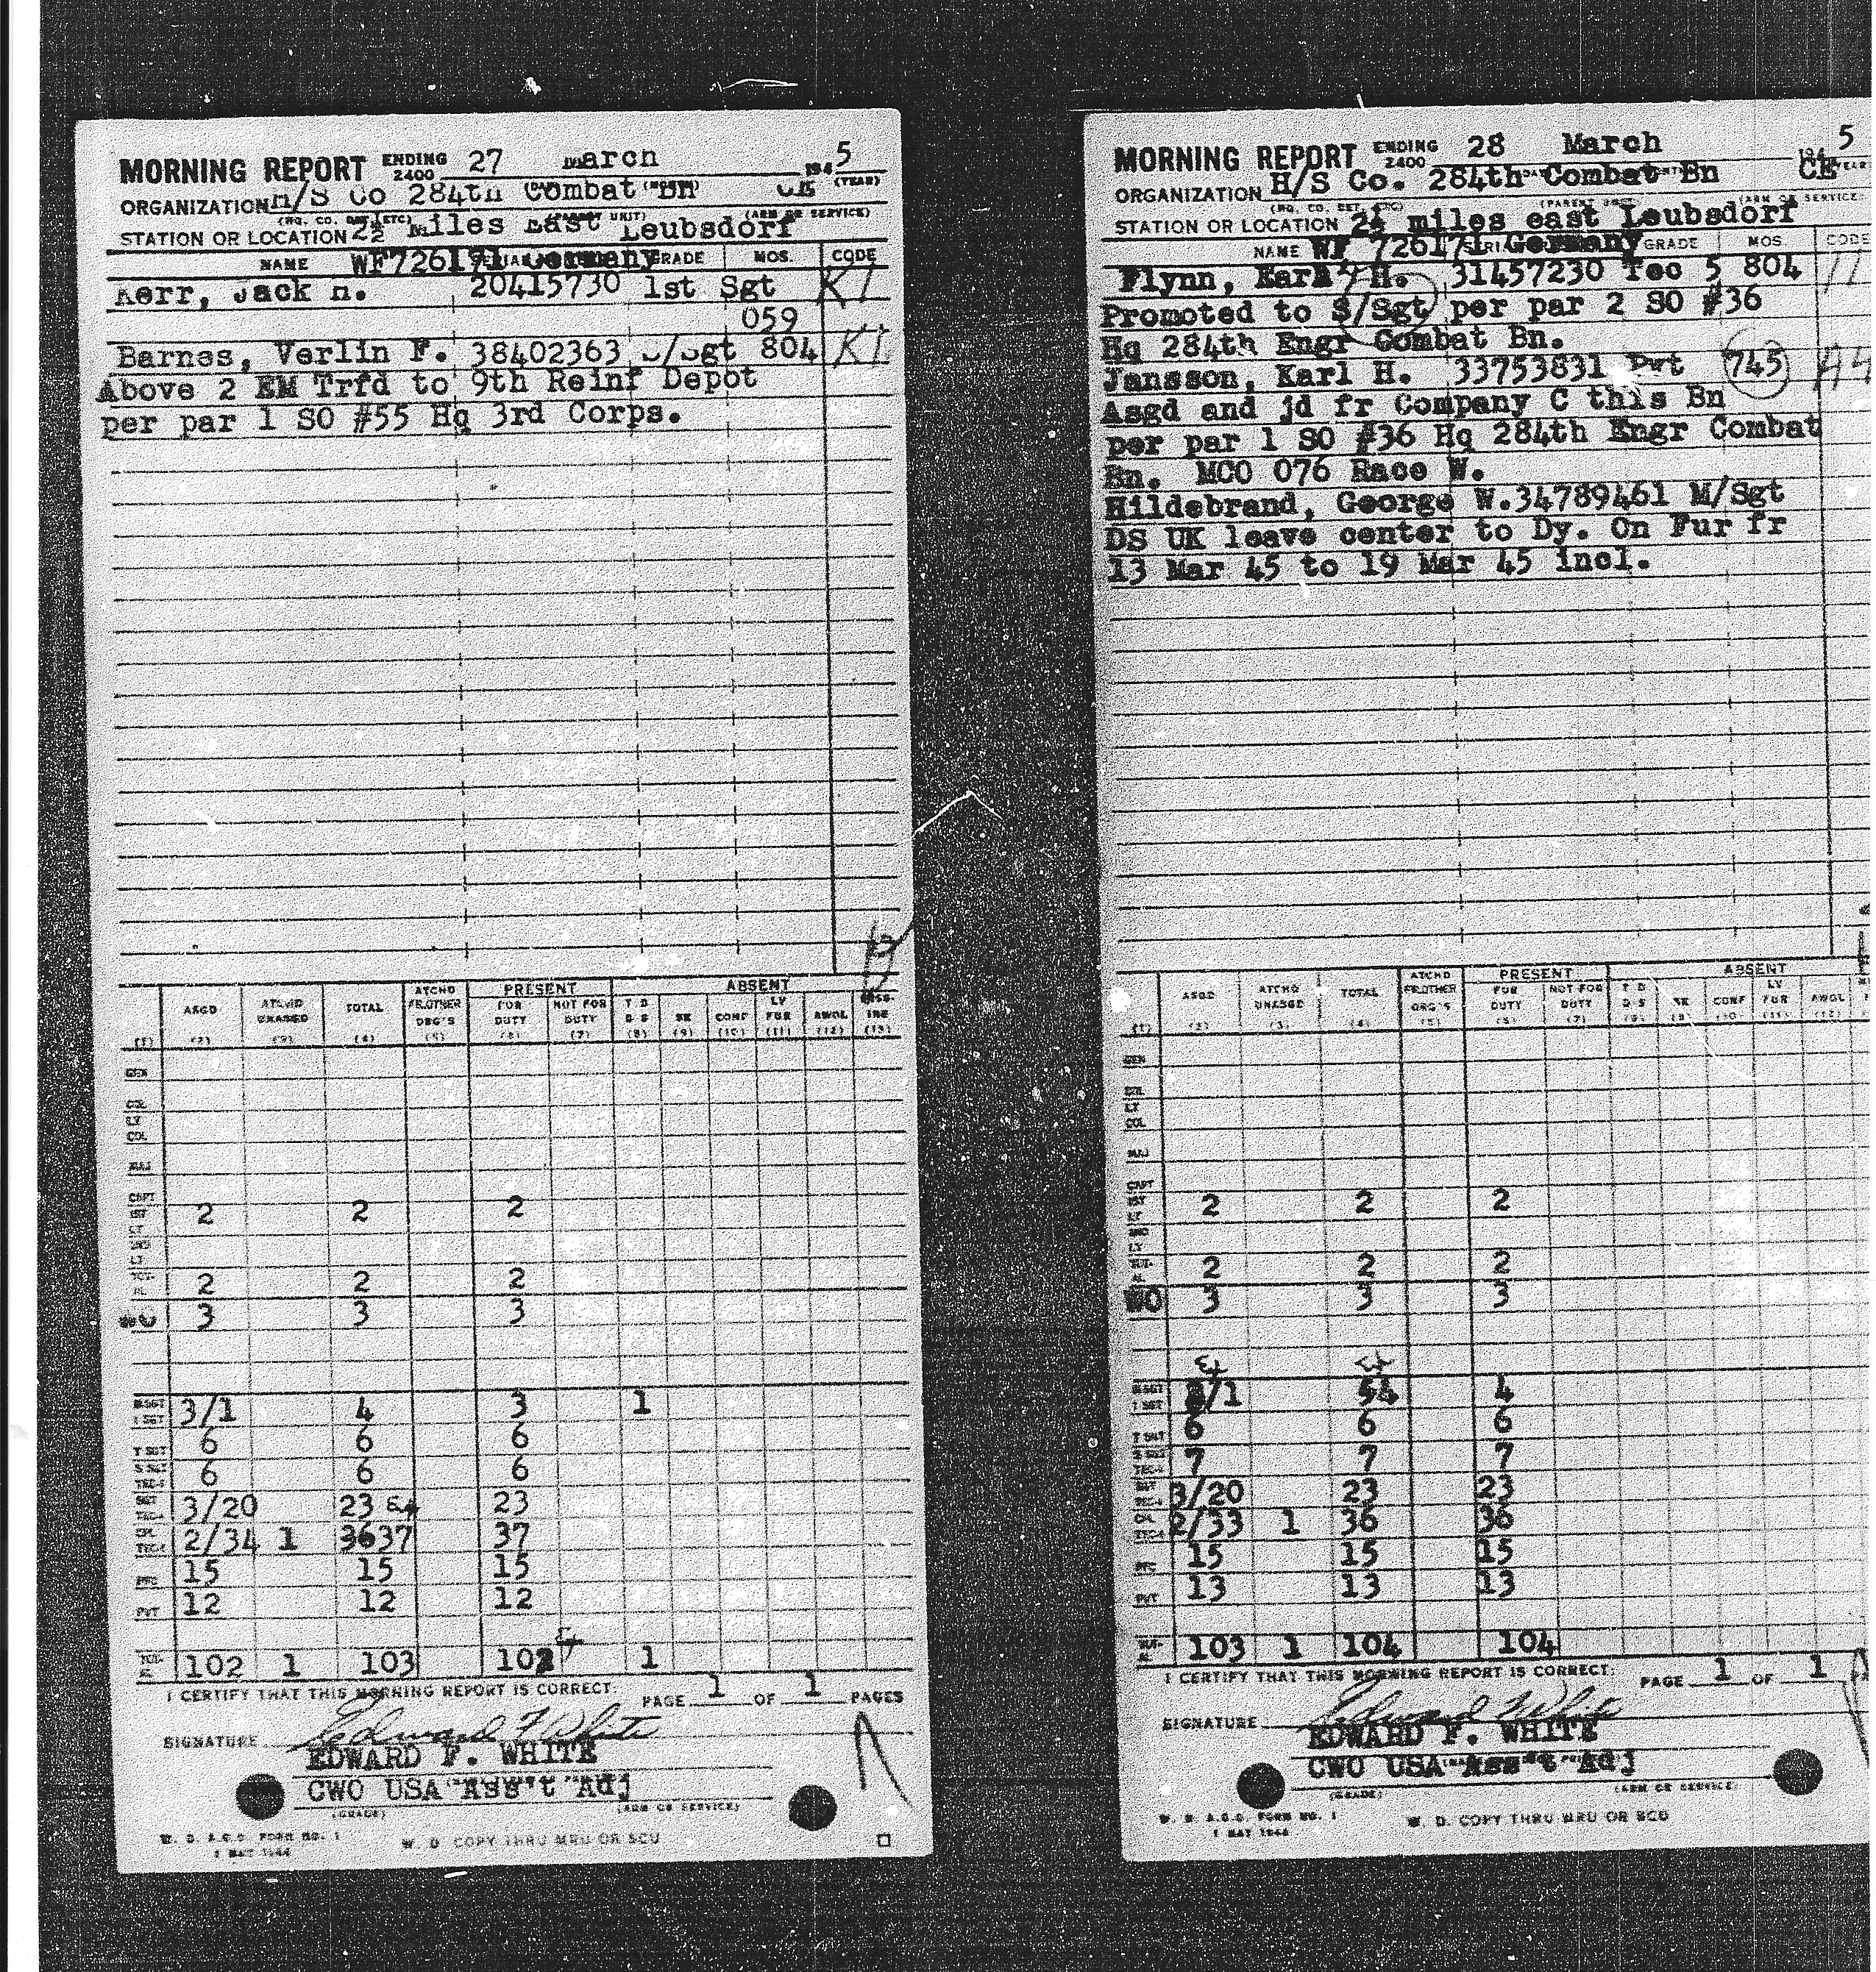 MORNING REPORT ENDING 2400 27 March 1945 (YEAR)
ORGANIZATION H/S Co 284th Combat Bn CE
(HQ. CO. DET. ETC) (PARENT UNIT) (ARM OR SERVICE)
STATION OR LOCATION 2½ Miles East Leubsdorf
NAME WF726191 Germany GRADE MOS. CODE
Kerr, Jack H. 20415730 1st Sgt KI
059
Barnes, Verlin F. 38402363 S/Sgt 804 KI
Above 2 EM Trfd to 9th Reinf Depot
per par 1 SO #55 Hq 3rd Corps.
PRESENT ABSENT
ASGD ATCHD UNASGD TOTAL ATCHD FR OTHER ORG'S FOR DUTY NOT FOR DUTY T D D S SK CONF LV FUR AWOL MISS-ING
(1) (2) (3) (4) (5) (6) (7) (8) (9) (10) (11) (12) (13)
GEN
COL
LT COL
MAJ
CAPT
1ST LT 2 2 2
2ND LT
TOT-AL 2 2 2
WO 3 3 3
M SGT 1 SGT 3/1 4 3 1
T SGT 6 6 6
S SGT TEC-3 6 6 6
SGT TEC-4 3/20 23 23
CPL TEC-5 2/34 1 3637 37
PFC 15 15 15
PVT 12 12 12
TOT-AL 102 1 103 102 1
I CERTIFY THAT THIS MORNING REPORT IS CORRECT. PAGE 1 OF 1 PAGES
SIGNATURE Edward F White
EDWARD F. WHITE
CWO USA Ass't Adj
(GRADE) (ARM OR SERVICE)
W. D. A.G.O. FORM NO. 1
1 MAY 1944
W. D. COPY THRU MRU OR SCU
MORNING REPORT ENDING 2400 28 March 1945 (YEAR
ORGANIZATION H/S Co. 284th Combat Bn CE
(HQ. CO. DET. ETC) (PARENT UNIT) (ARM OR SERVICE
STATION OR LOCATION 2½ miles east Leubsdorf
NAME WF 726171 Germany GRADE MOS CODE
Flynn, Earl H. 31457230 Tec 5 804
Promoted to S/Sgt per par 2 SO #36
Hq 284th Engr Combat Bn.
Jansson, Karl H. 33753831 Pvt 745
Asgd and jd fr Company C this Bn
per par 1 SO #36 Hq 284th Engr Combat
Bn. MCO 076 Race W.
Hildebrand, George W.34789461 M/Sgt
DS UK leave center to Dy. On Fur fr
13 Mar 45 to 19 Mar 45 incl.
PRESENT ABSENT
ASGD ATCHD UNASGD TOTAL ATCHD FR OTHER ORG'S FOR DUTY NOT FOR DUTY T D D S SK CONF LV FUR AWOL
(1) (2) (3) (4) (5) (6) (7) (8) (9) (10) (11) (12)
GEN
COL
LT COL
MAJ
CAPT
1ST LT 2 2 2
2ND LT
TOT-AL 2 2 2
WO 3 3 3
M SGT 1 SGT 3/1 54 4
T SGT 6 6 6
S SGT TEC-3 7 7 7
SGT TEC-4 3/20 23 23
CPL TEC-5 2/33 1 36 36
PFC 15 15 15
PVT 13 13 13
TOT-AL 103 1 104 104
I CERTIFY THAT THIS MORNING REPORT IS CORRECT. PAGE 1 OF 1
SIGNATURE Edward F White
EDWARD F. WHITE
CWO USA Ass't Adj
(GRADE) (ARM OR SERVICE)
W. D. A.G.O. FORM NO. 1
1 MAY 1944
W. D. COPY THRU MRU OR SCU